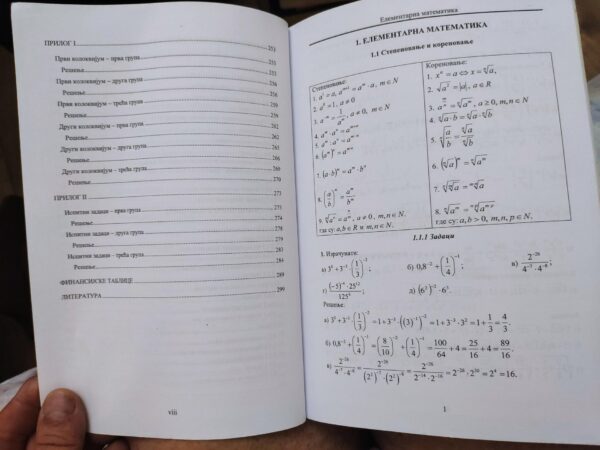 ПРИЛОГ I 253
Први колоквијум – прва група 253
Решење 255
Први колоквијум – друга група 256
Решење 258
Први колоквијум – трећа група
Решење 260
Други колоквијум – прва група 262
Решење
Други колоквијум – друга група
Решење 267
Други колоквијум – трећа група 268
Решење 270
ПРИЛОГ II 273
Испитни задаци – прва група 273
Решење 274
Испитни задаци – друга група 278
Решење 279
Испитни задаци – трећа група 283
Решење 284
ФИНАНСИЈСКЕ ТАБЛИЦЕ 289
ЛИТЕРАТУРА 299
viii
Елементарна математика
1. ЕЛЕМЕНТАРНА МАТЕМАТИКА
1.1 Степеновање и кореновање
Степеновање:
1. a¹ = a, aⁿ⁺¹ = aⁿ · a, n ∈ N
2. a⁰ = 1, a ≠ 0
3. a⁻ⁿ = 1/aⁿ, a ≠ 0, n ∈ N
4. aᵐ · aⁿ = aᵐ⁺ⁿ
5. aᵐ : aⁿ = aᵐ⁻ⁿ
6. (aᵐ)ⁿ = aᵐ·ⁿ
7. (a·b)ⁿ = aⁿ · bⁿ
8. (a/b)ᵐ = aᵐ/bᵐ
где су: a, b ∈ R и m, n ∈ N.
Кореновање:
1. xⁿ = a ⇔ x = ⁿ√a,
2. √a² = |a|, a ∈ R
3. a^(m/n) = ⁿ√aᵐ, a ≥ 0, m, n ∈ N
4. ⁿ√(a·b) = ⁿ√a · ⁿ√b
5. ⁿ√(a/b) = ⁿ√a / ⁿ√b
6. (ⁿ√a)ᵐ = ⁿ√aᵐ
7. ᵐ√(ⁿ√a) = ᵐⁿ√a
8. ⁿ√aᵐ = ⁿᵖ√aᵐᵖ
где су: a, b > 0, m, n, p ∈ N.
1.1.1 Задаци
1. Израчунати:
а) 3⁰ + 3⁻¹ · (1/3)⁻²; б) 0,8⁻² + (1/4)⁻¹; в) 2⁻²⁶/(4⁻⁷ · 4⁻⁸);
Решење:
б) 0,8⁻² + (1/4)⁻¹ = (8/10)⁻² + (1/4)⁻¹ = 100/64 + 4 = 25/16 + 4 = 89/16.
1